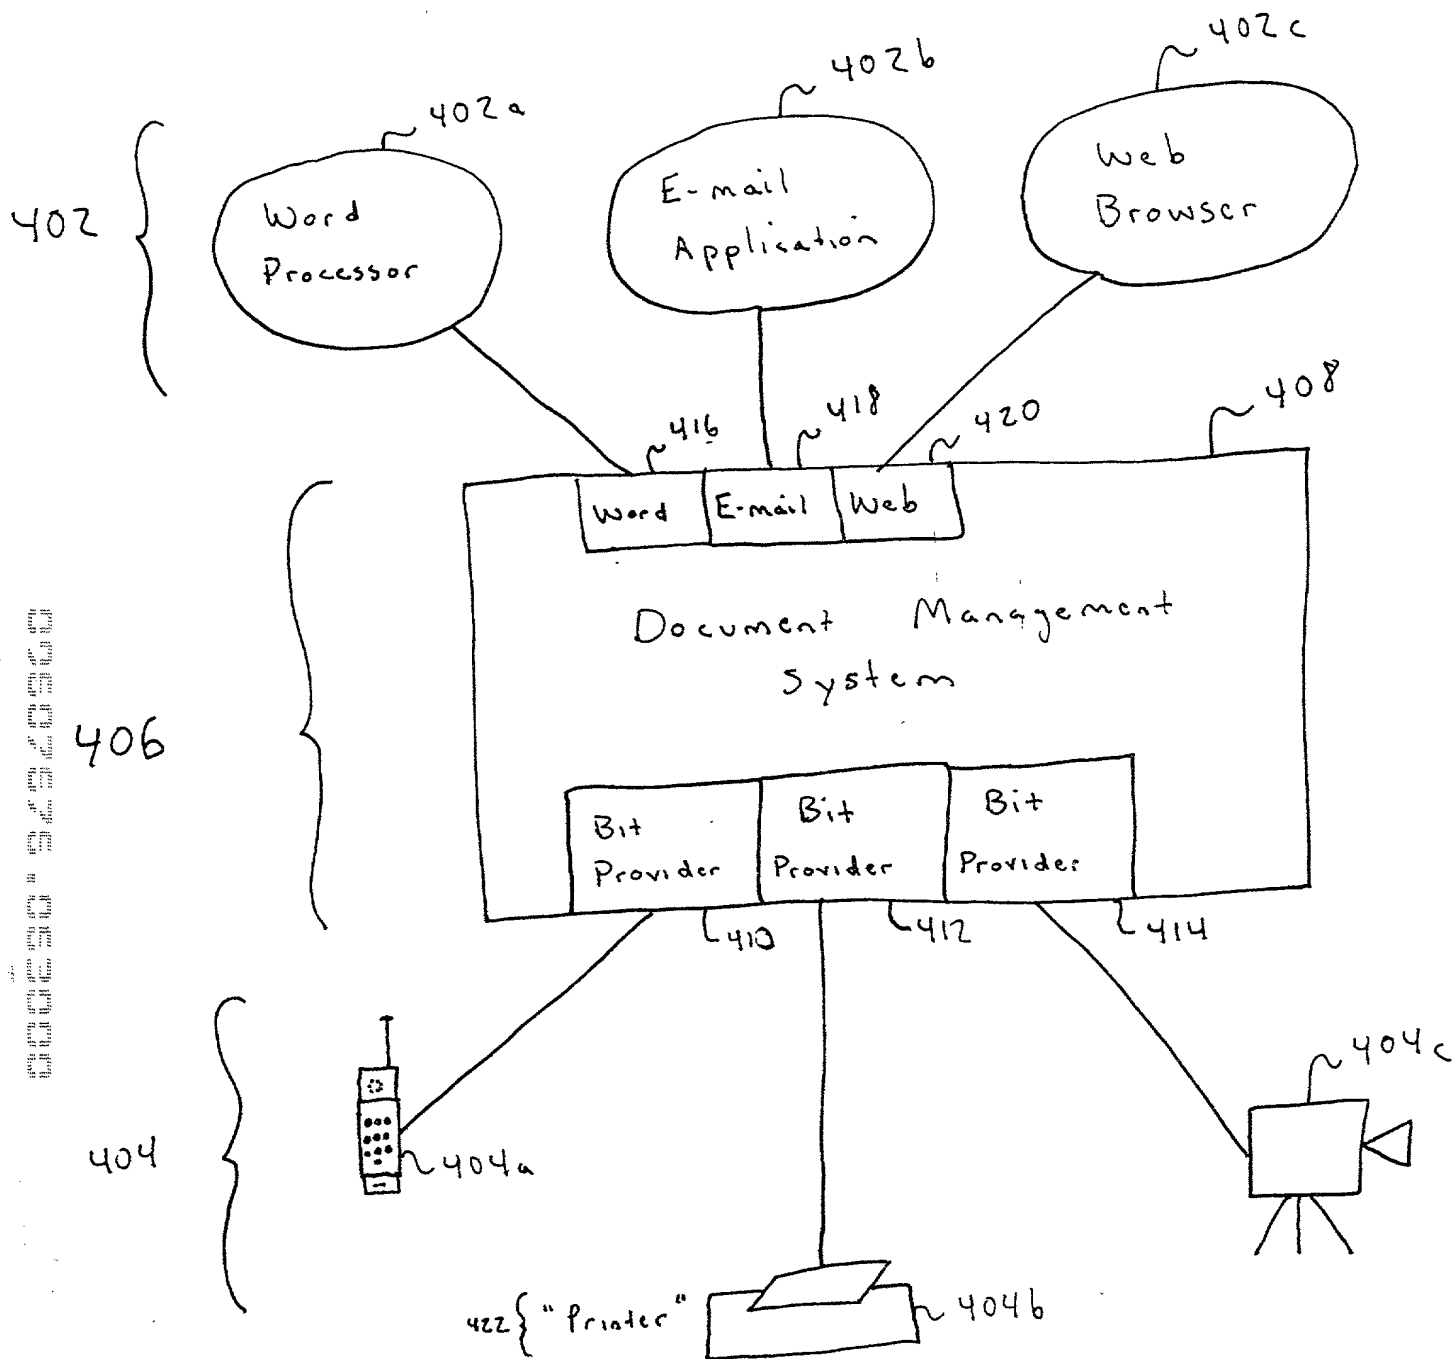 402a
402b
402c
402
Word
Processor
E-mail
Application
Web
Browser
416
418
420
408
Word
E-mail
Web
Document Management
System
406
Bit
Provider
Bit
Provider
Bit
Provider
410
412
414
404
404a
404c
422
"Printer"
404b